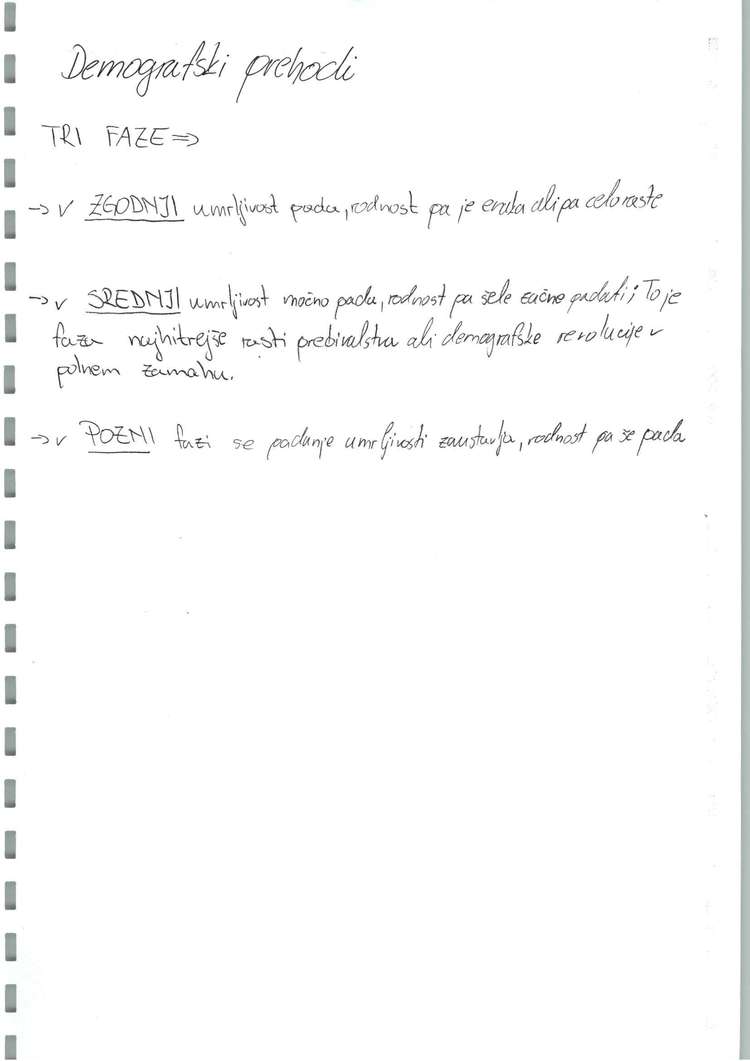 Demografski prehodi
TRI FAZE ⇒
→ V ZGODNJI umrljivost pada, rodnost pa je enaka ali pa celo raste
→ V SREDNJI umrljivost močno pada, rodnost pa šele začne padati; To je
faza najhitrejše rasti prebivalstva ali demografske revolucije v
polnem zamahu.
→ V POZNI fazi se padanje umrljivosti zaustavlja, rodnost pa še pada